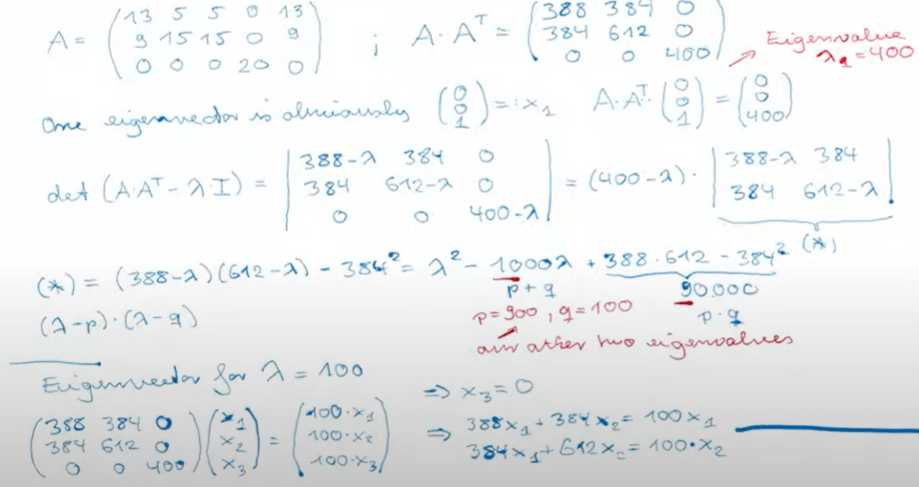 A = ( 13 5 5 0 13 ; 9 15 15 0 9 ; 0 0 0 20 0 ) ; A · Aᵀ = ( 388 384 0 ; 384 612 0 ; 0 0 400 )
Eigenvalue
λ₁ = 400
One eigenvector is obviously ( 0 ; 0 ; 1 ) =: x₁ A·Aᵀ· ( 0 ; 0 ; 1 ) = ( 0 ; 0 ; 400 )
det (A·Aᵀ − λ·I) = | 388-λ 384 0 ; 384 612-λ 0 ; 0 0 400-λ | = (400-λ) · | 388-λ 384 ; 384 612-λ |
(*)
(*) = (388-λ)(612-λ) − 384² = λ² − 1000λ + 388·612 − 384²
p+q 90.000
(λ-p)·(λ-q) p=900, q=100 p·q
our other two eigenvalues
Eigenvector for λ = 100 ⇒ x₃ = 0
( 388 384 0 ; 384 612 0 ; 0 0 400 ) ( x₁ ; x₂ ; x₃ ) = ( 100·x₁ ; 100·x₂ ; 100·x₃ )
⇒ 388x₁ + 384x₂ = 100x₁
384x₁ + 612x₂ = 100·x₂